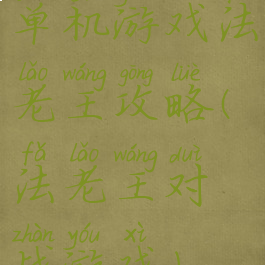 单机游戏法
lǎo wáng gōng lüè
老王攻略(
fǎ lǎo wáng duì
法老王对
zhàn yóu xì
战游戏)